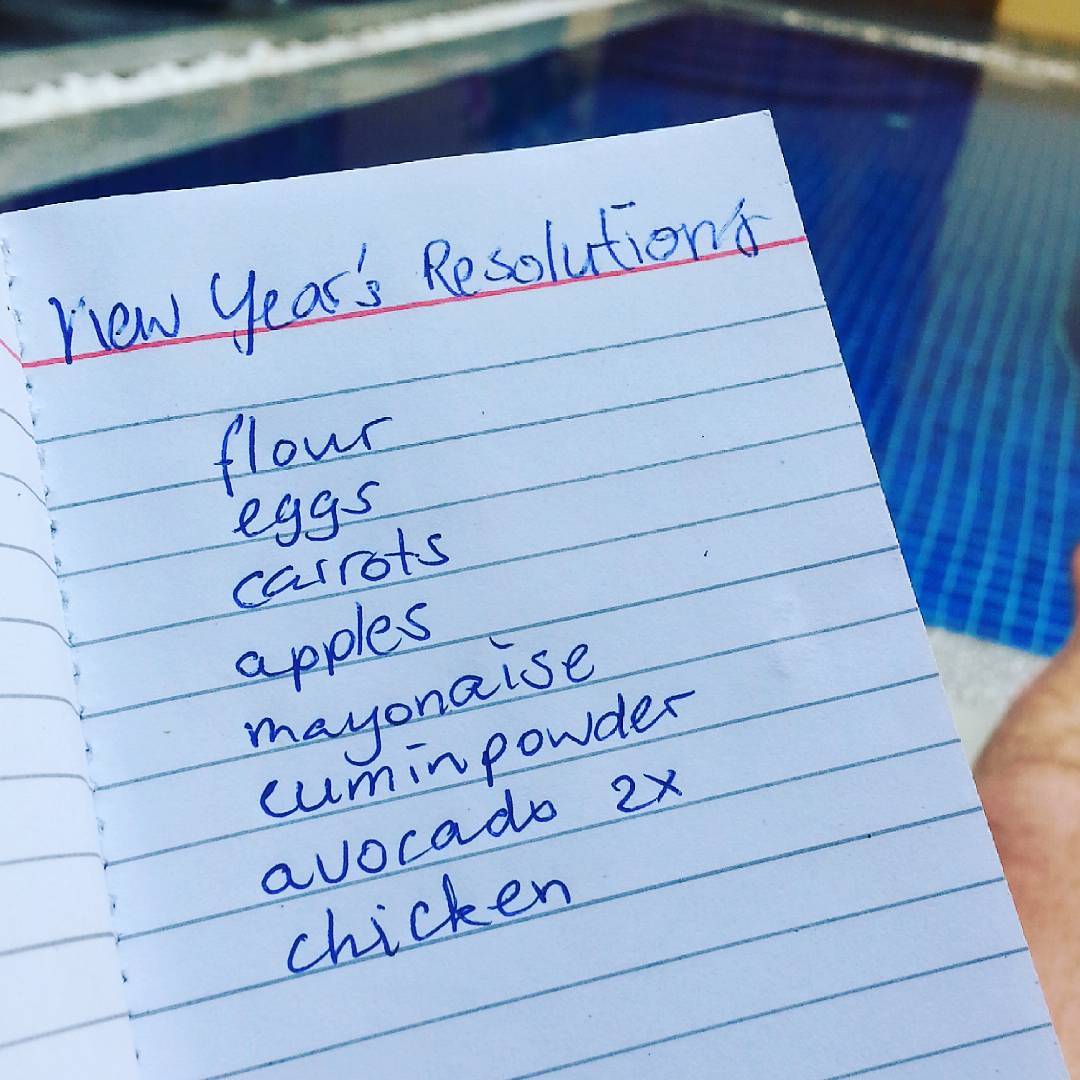 New Year's Resolutions
flour
eggs
carrots
apples
mayonaise
cuminpowder
avocado 2x
chicken